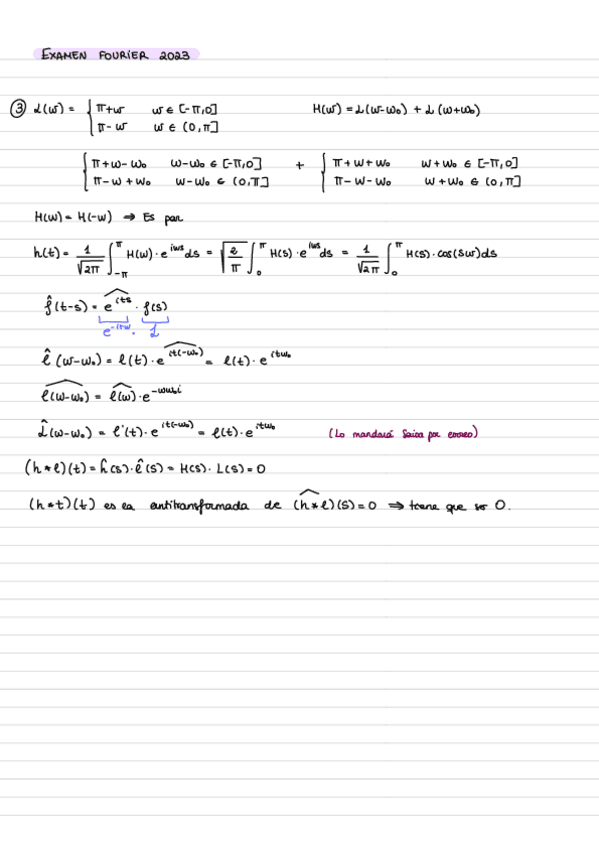 EXAMEN FOURIER 2023
③ L(w) = { π+w w ∈ [-π,0] H(w) = L(w-w₀) + L(w+w₀)
π-w w ∈ (0,π]
{ π+w-w₀ w-w₀ ∈ [-π,0] + { π+w+w₀ w+w₀ ∈ [-π,0]
π-w+w₀ w-w₀ ∈ (0,π] π-w-w₀ w+w₀ ∈ (0,π]
H(w) = H(-w) ⇒ Es par
h(t) = 1/√2π ∫_{-π}^{π} H(w)·e^{iws} ds = √(2/π) ∫_0^π H(s)·e^{iws} ds = 1/√2π ∫_0^π H(s)·cos(sw) ds
f̂(t-s) = \widehat{e^{its}} · f(s)
e^{-itw} · L
l̂(w-w₀) = l(t)·\widehat{e^{it(-w₀)}} = l(t)·e^{itw₀}
\widehat{l(w-w₀)} = \widehat{l(w)}·e^{-ww₀i}
L̂(w-w₀) = l'(t)·e^{it(-w₀)} = l(t)·e^{itw₀} (Lo mandará Saioa por correo)
(h*l)(t) = ĥ(s)·l̂(s) = H(s)·L(s) = 0
(h*t)(t) es la antitransformada de \widehat{(h*l)}(s) = 0 ⇒ tiene que ser 0.